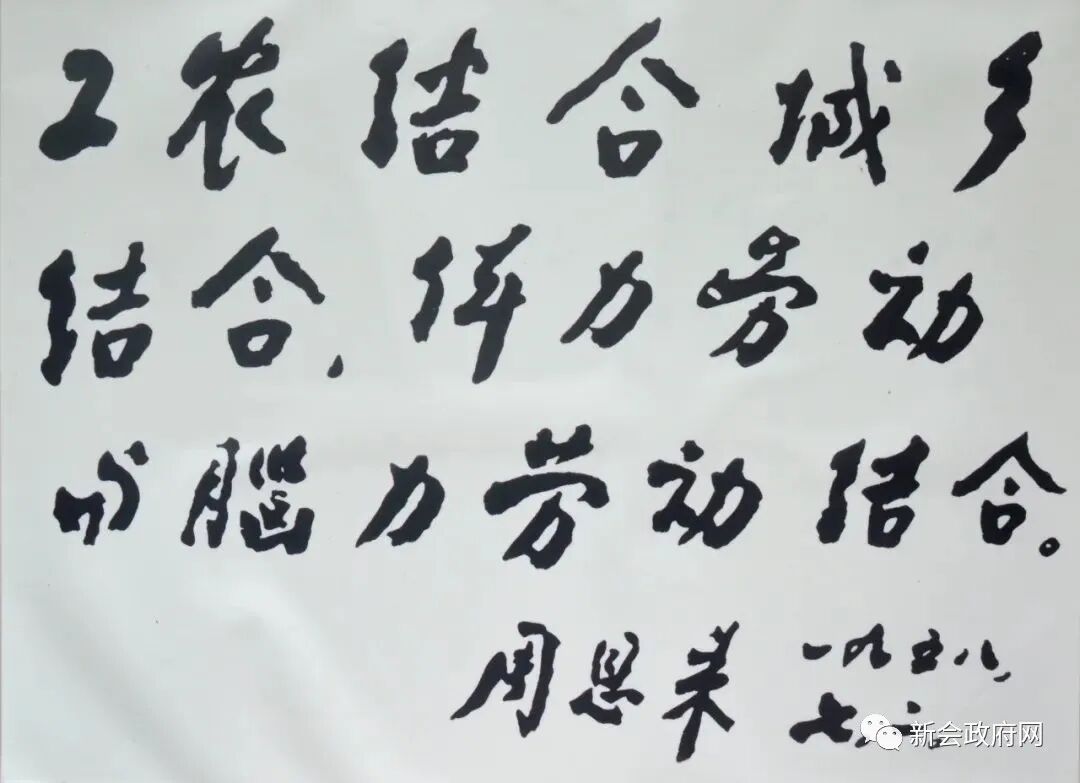 工农结合城乡
结合,体力劳动
与腦力劳动结合。
周恩来 一九五八,
七
新会政府网